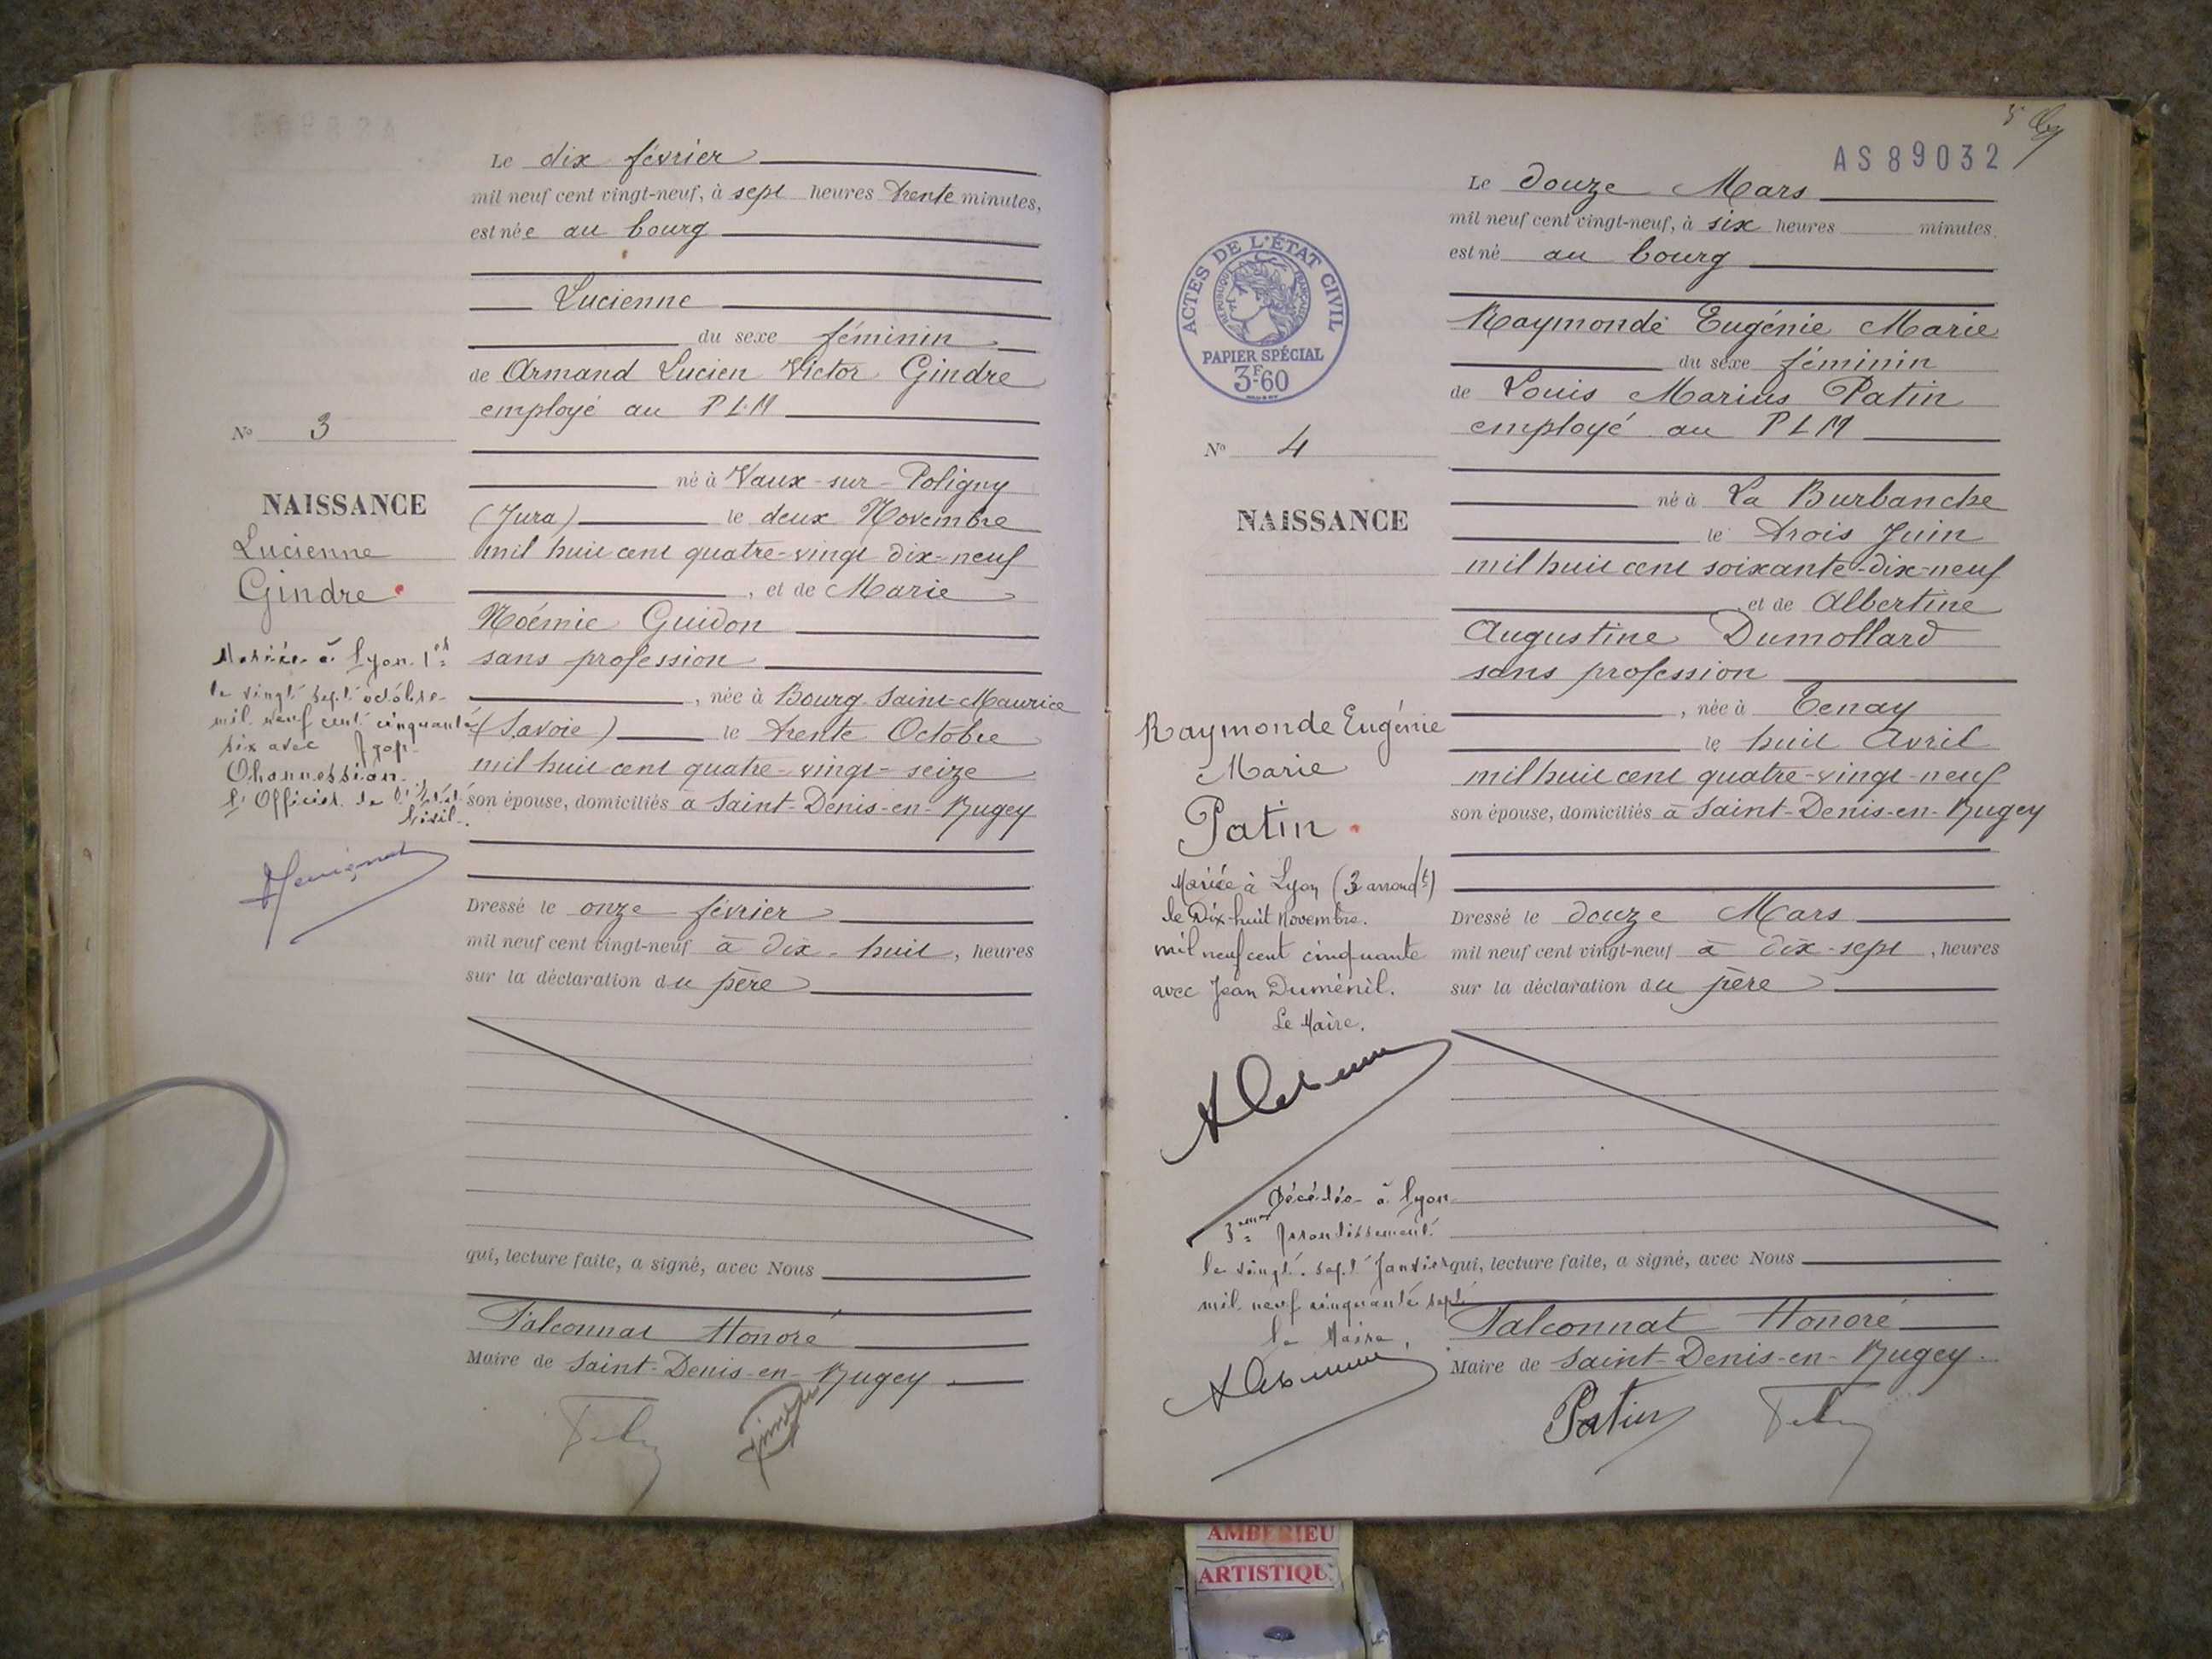 Le dix février
mil neuf cent vingt-neuf, à sept heures trente minutes,
est née au bourg
Lucienne
du sexe féminin
de Armand Lucien Victor Gindre
employé au P L M
né à Vaux-sur-Poligny
(Jura) le deux Novembre
mil huit cent quatre-vingt dix-neuf
, et de Marie
Noémie Guidon
sans profession
, née à Bourg-Saint-Maurice
(Savoie) le trente Octobre
mil huit cent quatre-vingt-seize
son épouse, domiciliés à Saint-Denis-en-Bugey
Dressé le onze février
mil neuf cent vingt-neuf à dix-huit, heures
sur la déclaration du père
qui, lecture faite, a signé, avec Nous
Falconnat Honoré
Maire de Saint-Denis-en-Bugey
Gindre
No 3
NAISSANCE
Lucienne
Gindre
Mariée à Lyon 1er
le vingt sept octobre
mil neuf cent cinquante
six avec Agop
Ohannessian
L'Officier de l'Etat
Civil
AS89032
Le douze Mars
mil neuf cent vingt-neuf, à six heures minutes
est né au bourg
Raymonde Eugénie Marie
du sexe féminin
de Louis Marius Patin
employé au P L M
né à La Burbanche
le trois Juin
mil huit cent soixante-dix-neuf
et de Albertine
Augustine Dumollard
sans profession
, née à Tenay
le huit Avril
mil huit cent quatre-vingt-neuf
son épouse, domiciliés à Saint-Denis-en-Bugey
Dressé le douze Mars
mil neuf cent vingt-neuf à dix-sept, heures
sur la déclaration du père
qui, lecture faite, a signé, avec Nous
Falconnat Honoré
Maire de Saint-Denis-en-Bugey
Patin
ACTES DE L'ÉTAT CIVIL
RÉPUBLIQUE FRANÇAISE
PAPIER SPÉCIAL
3F60
No 4
NAISSANCE
Raymonde Eugénie
Marie
Patin
Mariée à Lyon (3 arrondt)
le Dix-huit Novembre
mil neuf cent cinquante
avec Jean Duménil.
Le Maire.
Décédée à Lyon
3eme Arrondissement
le vingt-sept Janvier
mil neuf cinquante sept
le Maire,
AMBERIEU
ARTISTIQU